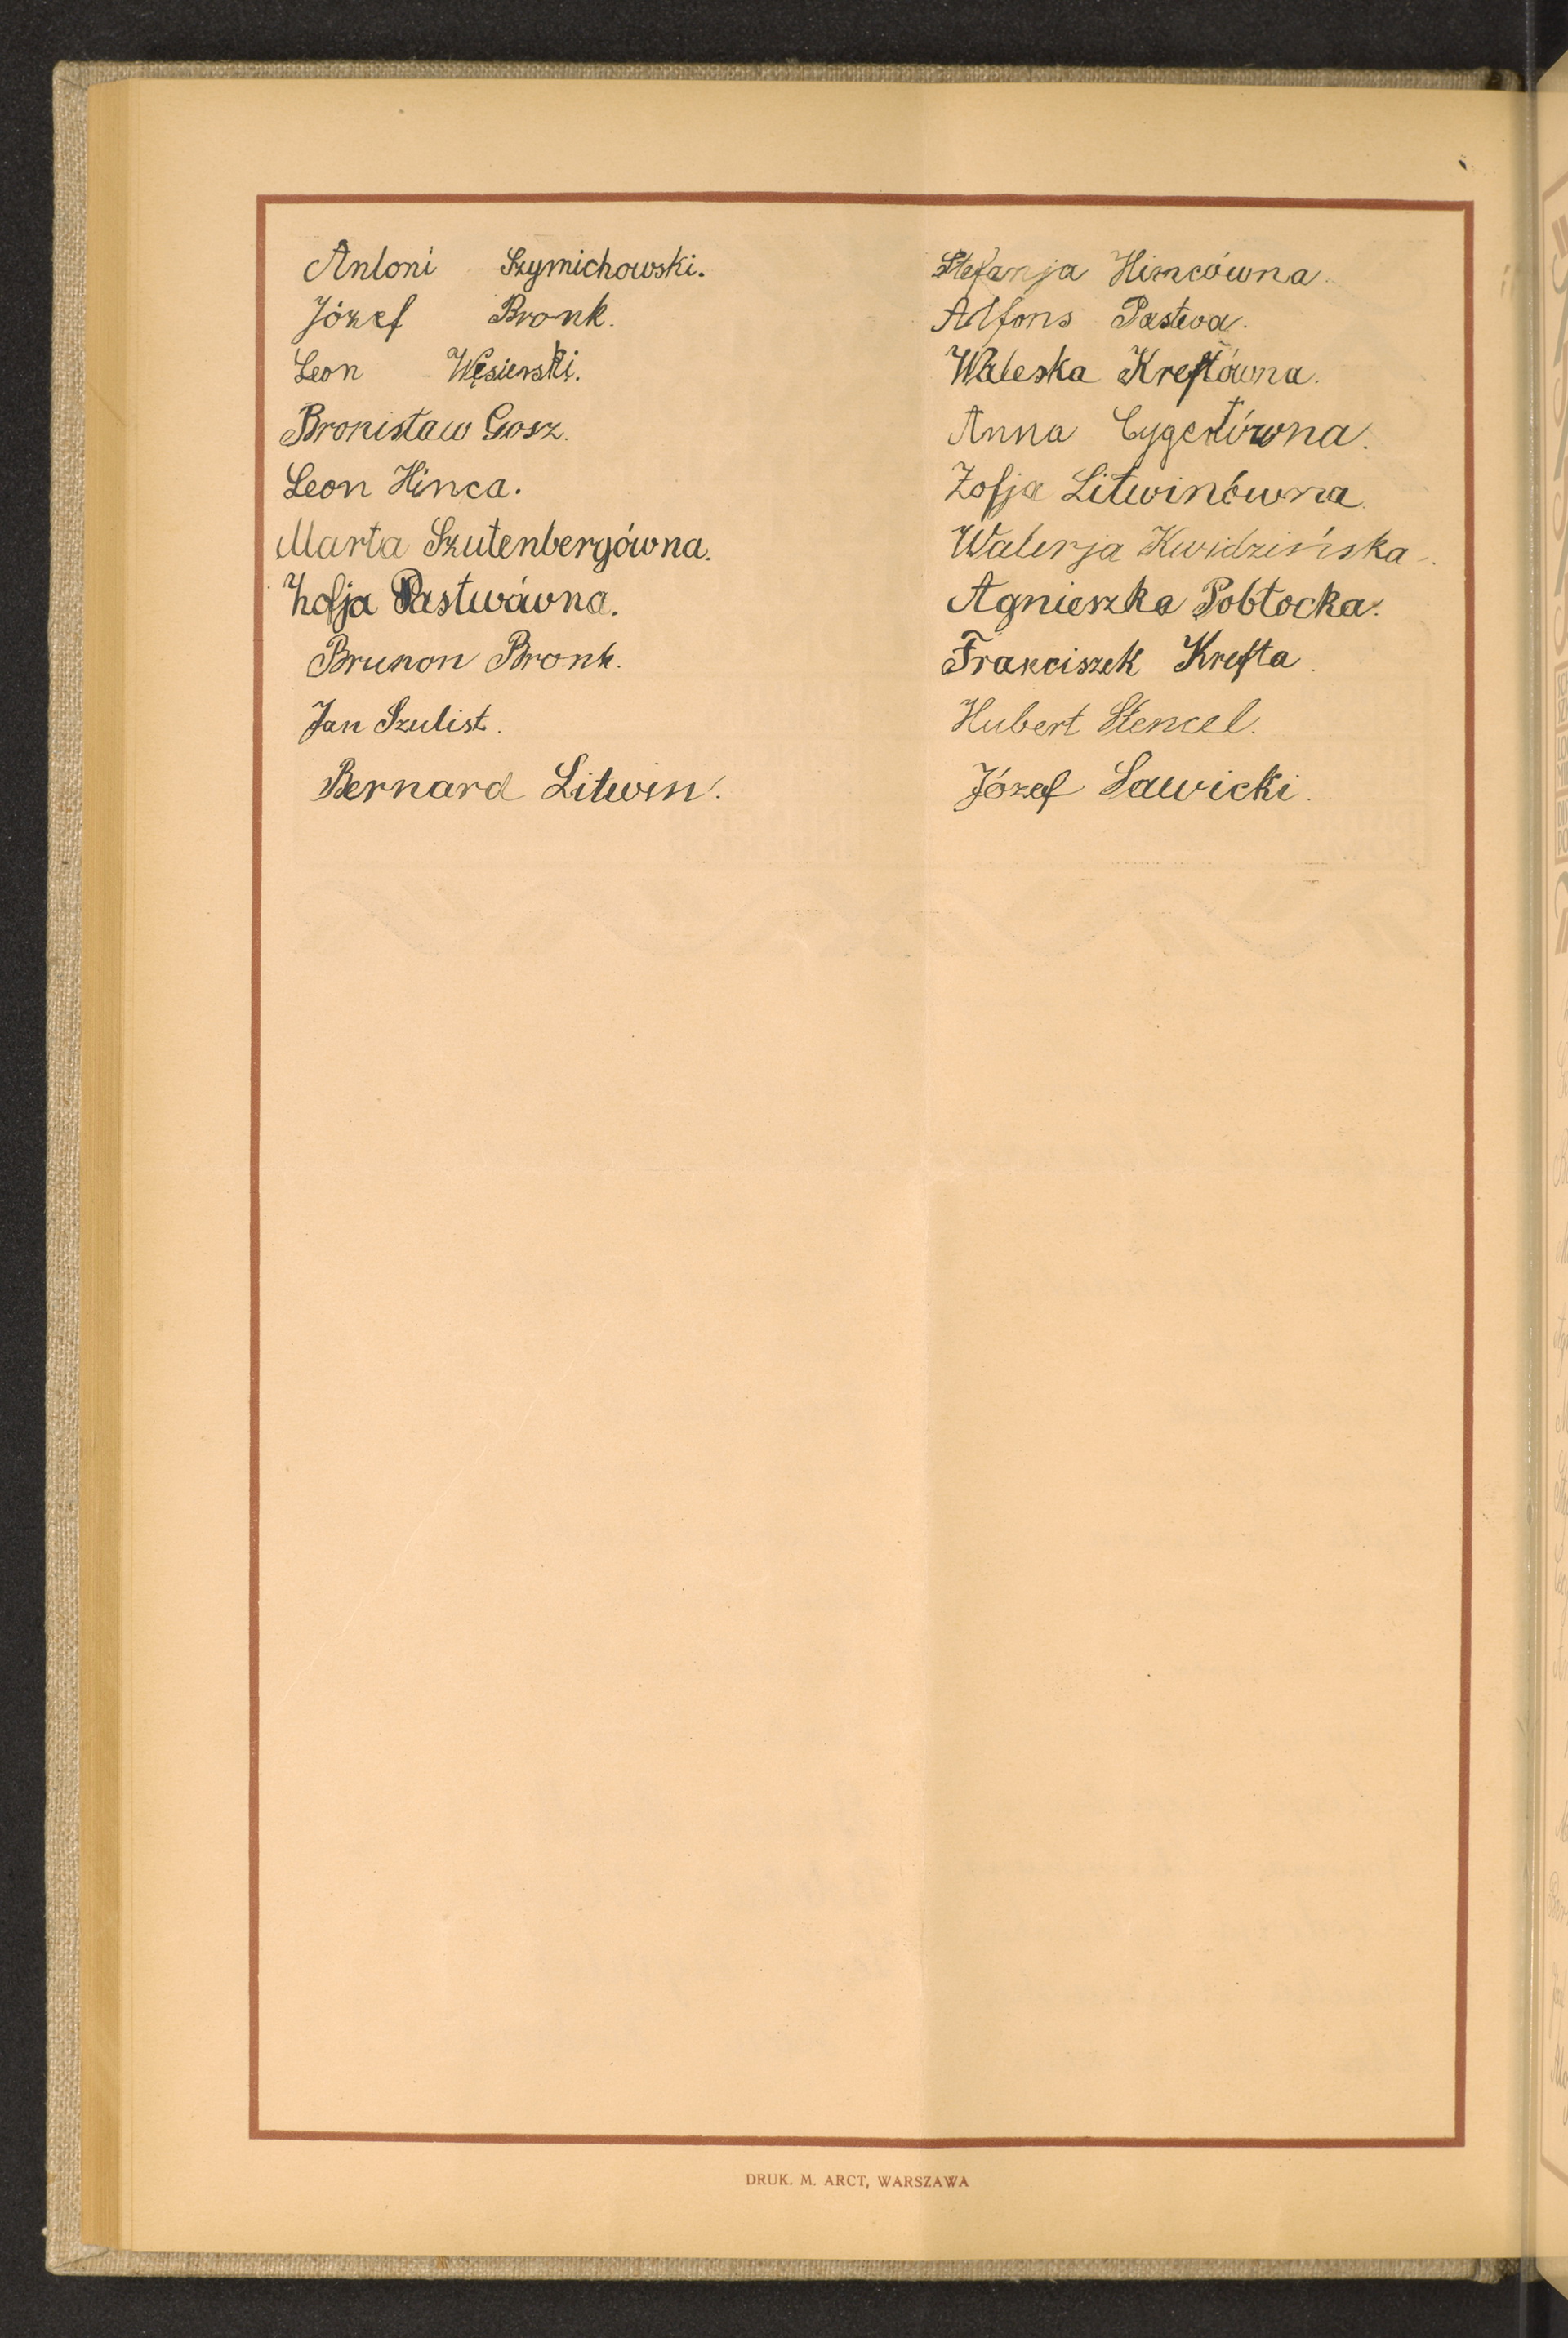 Antoni Szymichowski.
Józef Bronk.
Leon Węsierski.
Bronisław Gosz.
Leon Hinca.
Marta Szutenbergówna.
Zofja Pastwówna.
Brunon Bronk.
Jan Szulist.
Bernard Litwin.
Stefanja Hincówna.
Alfons Pastwa.
Waleska Kreftówna.
Anna Cygertówna.
Zofja Litwinówna.
Walerja Kwidzińska.
Agnieszka Pobłocka.
Franciszek Krefta.
Hubert Stencel.
Józef Sawicki.
DRUK. M. ARCT, WARSZAWA